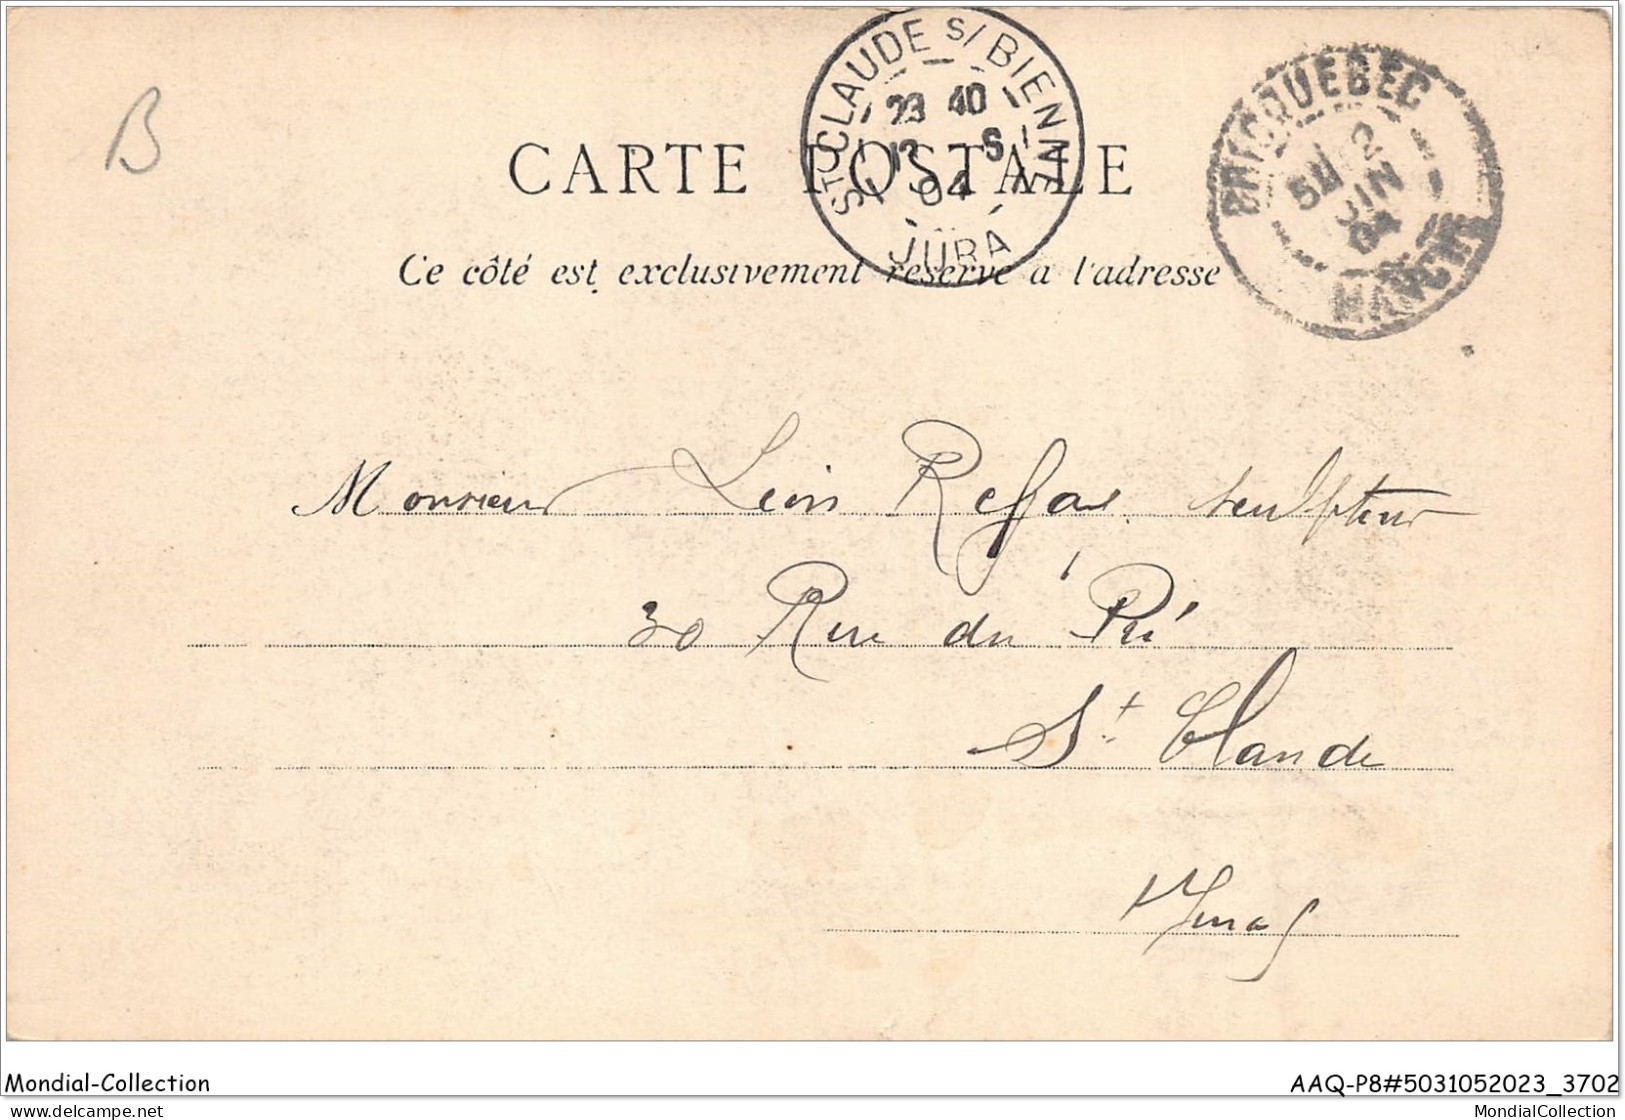 B
ST CLAUDE S/ BIENNE
23 40
12 - 6
04
JURA
BRICQUEBEC
5H 2
JUIN
04
MANCHE
CARTE POSTALE
Ce côté est exclusivement réservé a l'adresse
Monsieur Léon Reffay sculpteur
30 Rue du Pré
St Claude
Jura
Mondial-Collection
AAQ-P8#5031052023_3702
delcampe.net
MondialCollection